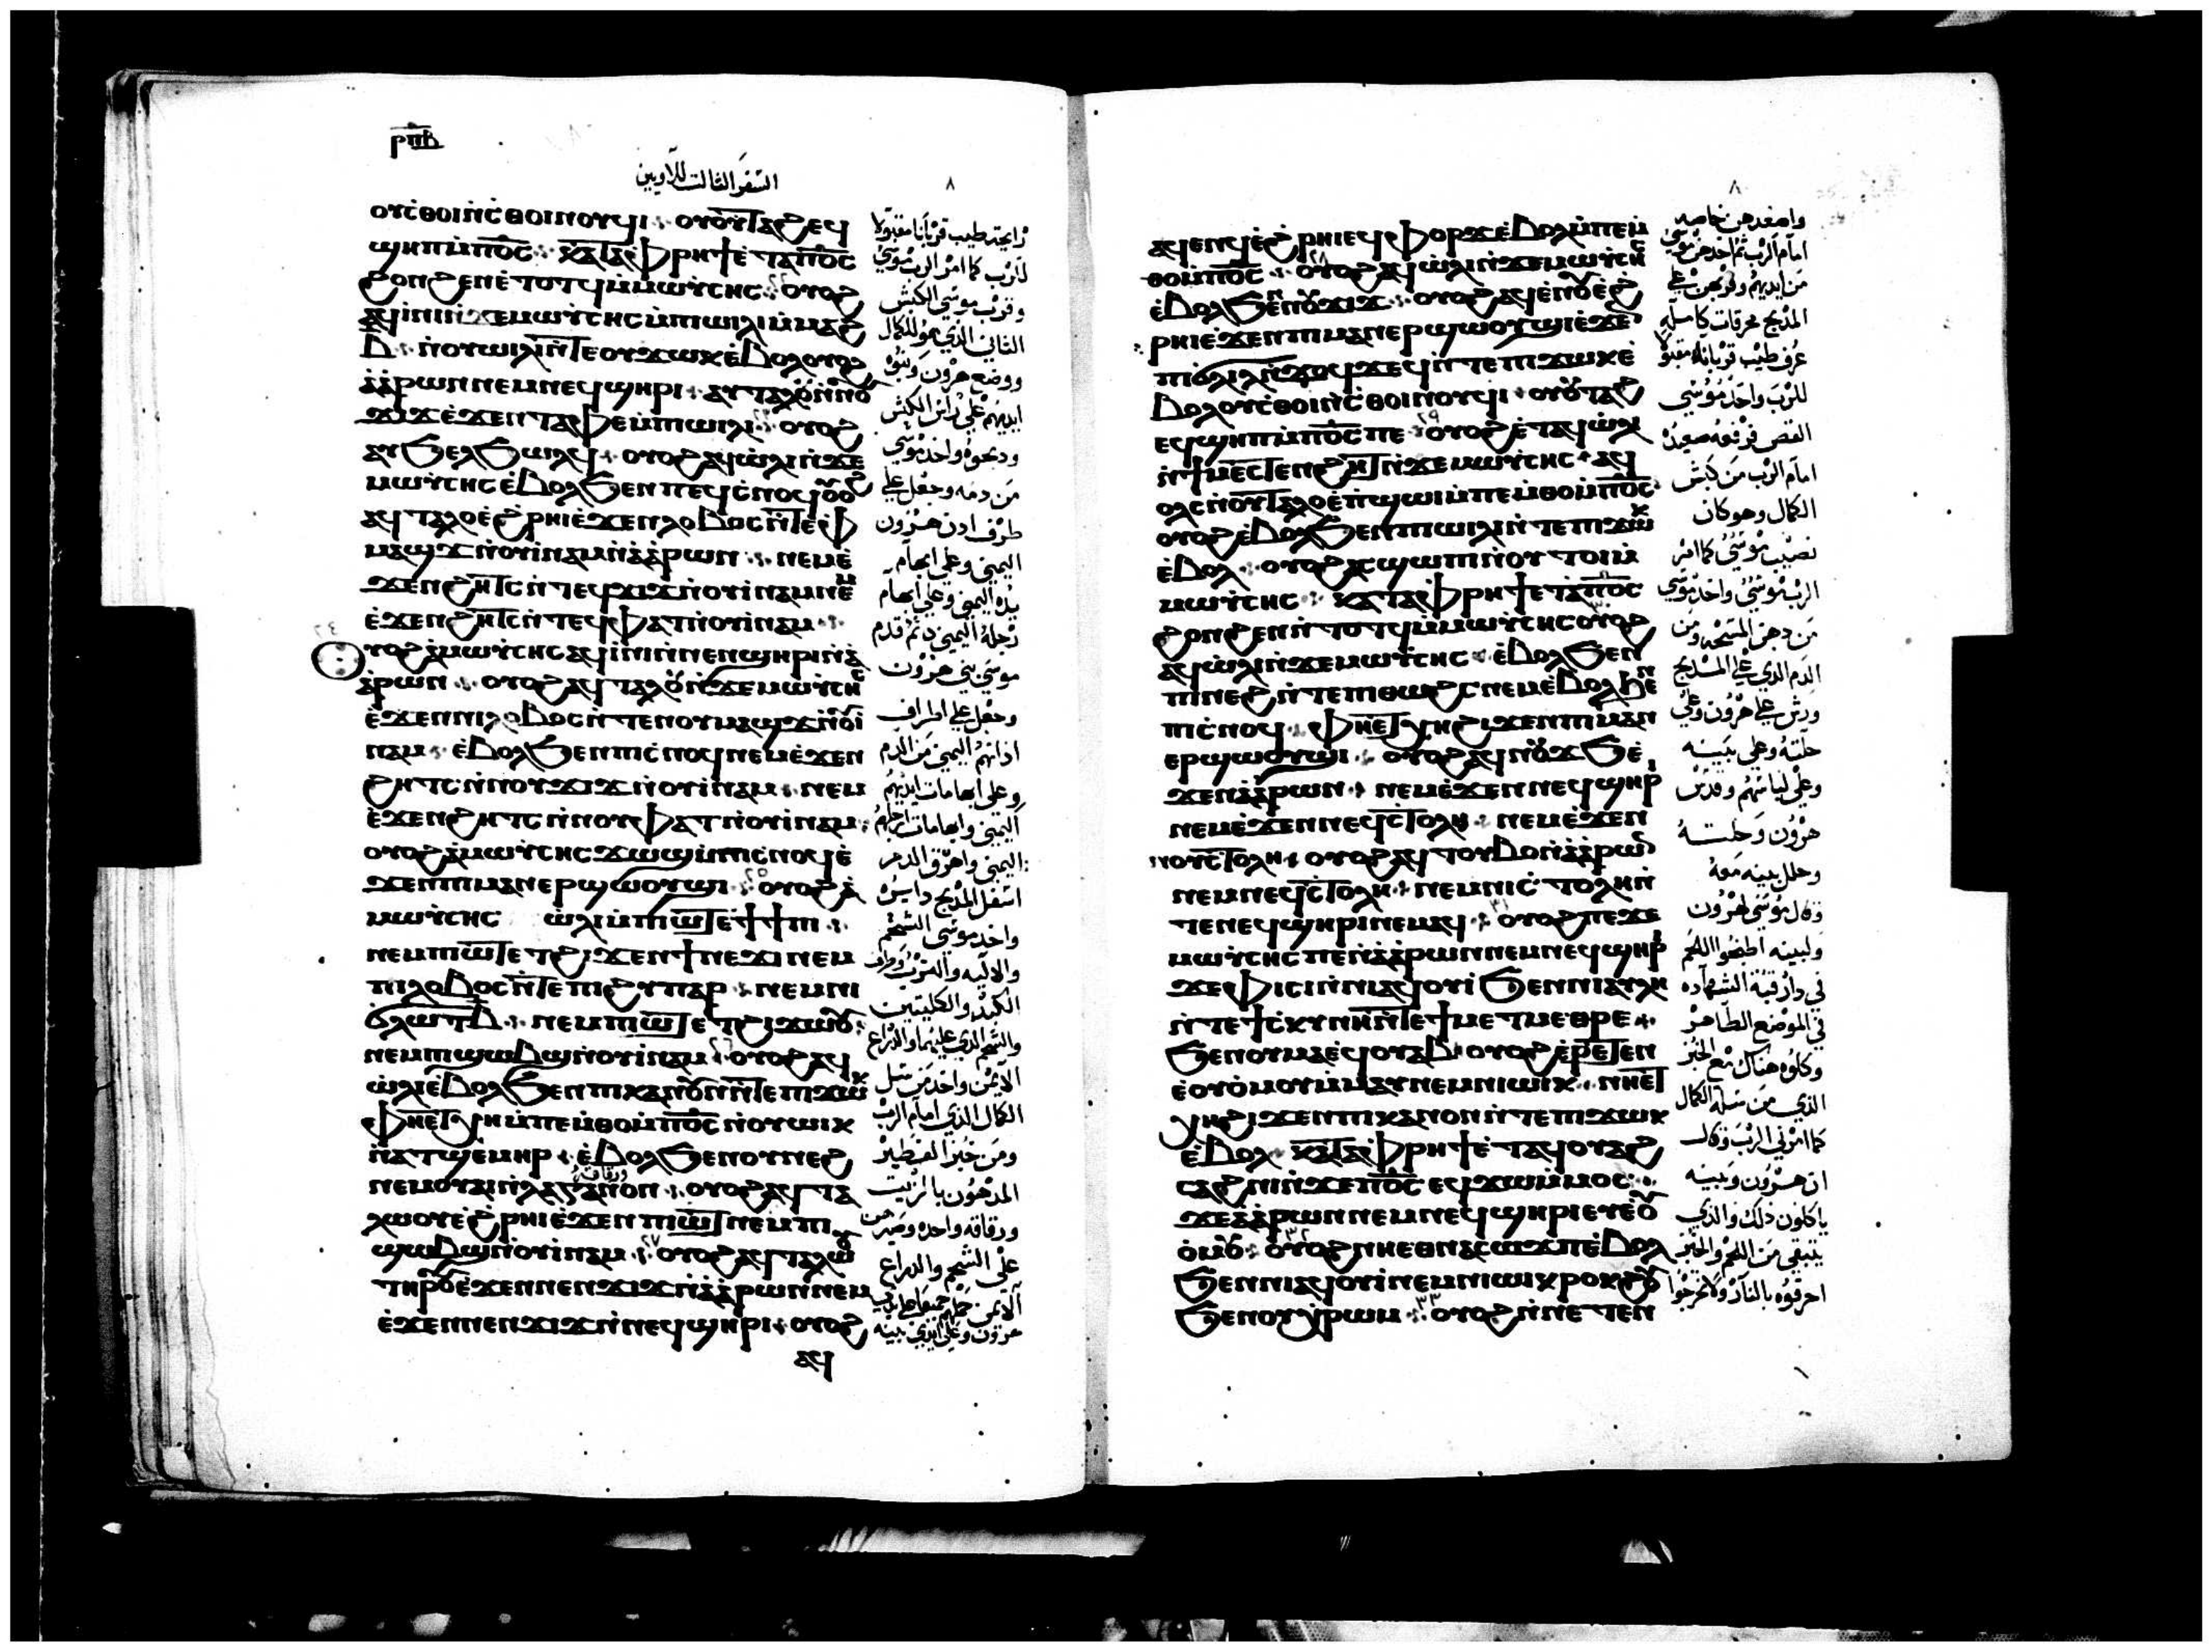 ⲣⲡⲃ
السفر الثالث للاويين
٨
ⲟⲩⲥ̇ⲑⲟⲓⲛ̇ⲥ̇ⲑⲟⲓⲛⲟⲩϥⲓ ⲟⲩⲟ̇ⲩⲧⲁϩⲉϥ
ϣⲏⲡⲙ̇ⲡⲟ̅ⲥ̅ ⲕⲁⲧⲁⲫⲣⲏϯⲉ̇ⲧⲁⲡⲟ̅ⲥ̅
ϩⲟⲛϩⲉⲛⲉ̇ⲧⲟⲧϥⲙ̇ⲙⲱⲩⲥⲏⲥ ⲟⲩⲟϩ
ⲁϥⲓ̇ⲛⲓⲛ̇ϫⲉⲙⲱⲩⲥⲏⲥⲙ̇ⲡⲓⲱⲓⲗⲓⲙ̇ⲙⲁϩ
ⲃ̅ ⲛ̇ⲟⲩⲱⲓⲗⲓⲛ̇ⲧⲉⲟⲩϫⲱⲕⲉ̇ⲃⲟⲗⲟⲩⲟϩ
ⲁ̇ⲁ̇ⲣⲱⲛⲛⲉⲙⲛⲉϥϣⲏⲣⲓ ⲁⲩⲧⲁⲗⲟ̇ⲛ̇ⲛⲟⲩ
ϫⲓϫⲉ̇ϫⲉⲛⲧⲁⲫⲉⲙ̇ⲡⲓⲱⲓⲗⲓ ⲟⲩⲟϩ
ⲁⲩϧⲉⲗϧⲱⲗϥ ⲟⲩⲟϩⲁϥⲱ̇ⲗⲓⲛ̇ϫⲉ
ⲙⲱⲩⲥⲏⲥⲉ̇ⲃⲟⲗϧⲉⲛⲡⲉϥⲥ̇ⲛⲟϥⲟⲩⲟϩ
ⲁϥⲧⲁⲗⲟⲉ̇ϩⲣⲏⲓⲉ̇ϫⲉⲛⲗⲟⲃⲟⲥⲛ̇ⲧⲉⲫ
ⲙⲁϣϫⲛ̇ⲟⲩⲓ̇ⲛⲁⲙⲛ̇ⲁ̇ⲁ̇ⲣⲱⲛ ⲛⲉⲙⲉ̇
ϫⲉⲛϩⲏⲧⲥⲛ̇ⲧⲉϥϫⲓϫⲛ̇ⲟⲩⲓ̇ⲛⲁⲙⲛⲉⲙ
ⲉ̇ϫⲉⲛϩⲏⲧⲥⲛ̇ⲧⲉϥⲫⲁⲧⲛ̇ⲟⲩⲓ̇ⲛⲁⲙ
ⲟⲩⲟϩⲁ̇ⲙⲱⲩⲥⲏⲥⲁϥⲓ̇ⲛⲓⲛ̇ⲛⲉⲛϣⲏⲣⲓⲛ̇ⲁ̇
ⲁ̇ⲣⲱⲛ ⲟⲩⲟϩⲁϥⲧⲁⲗⲟ̇ⲛ̇ϫⲉⲙⲱⲩⲥⲏⲥ
ⲉ̇ϫⲉⲛⲛⲓⲗⲟⲃⲟⲥⲛ̇ⲧⲉⲛⲟⲩⲙⲁϣϫⲛ̇ⲟⲩⲓ̇
ⲛⲁⲙ ⲉ̇ⲃⲟⲗϧⲉⲛⲡⲓⲥ̇ⲛⲟϥⲛⲉⲙⲉ̇ϫⲉⲛ
ϩⲏⲧⲥⲛ̇ⲛⲟⲩϫⲓϫⲛ̇ⲟⲩⲓ̇ⲛⲁⲙ ⲛⲉⲙ
ⲉ̇ϫⲉⲛϩⲏⲧⲥⲛ̇ⲛⲟⲩⲫⲁⲧⲛ̇ⲟⲩⲓ̇ⲛⲁⲙ
ⲟⲩⲟϩⲁ̇ⲙⲱⲩⲥⲏⲥϫⲱϣⲙ̇ⲡⲓⲥ̇ⲛⲟϥⲉ̇
ϫⲉⲛⲡⲓⲙⲁⲛⲉⲣϣⲱⲟⲩϣⲓ ⲟⲩⲟϩⲁ̇
ⲙⲱⲩⲥⲏⲥ ⲱ̇ⲗⲓⲙ̇ⲡⲓⲱⲧⲉ̇ϯϯⲡⲓ
ⲛⲉⲙⲡⲓⲱⲧⲉⲧϩⲓϫⲉⲛϯⲛⲉϫⲓⲛⲉⲙ
ⲡⲓⲗⲟⲃⲟⲥⲛ̇ⲧⲉⲡⲓϩⲩⲡⲁⲣ ⲛⲉⲙⲛⲓ
ϭⲗⲱⲧⲃ̅ ⲛⲉⲙⲡⲓⲱⲧⲉⲧϩⲓϫⲱⲟⲩ
ⲛⲉⲙⲡⲓϣⲱⲃϣⲛ̇ⲟⲩⲓ̇ⲛⲁⲙ ⲟⲩⲟϩⲁϥ
ⲱ̇ⲗⲓⲉ̇ⲃⲟⲗϧⲉⲛⲡⲓⲕⲁⲛⲟⲩⲛⲛ̇ⲧⲉⲡⲓϫⲱⲕ
ⲫⲏⲉⲧⲭⲏⲙ̇ⲡⲉⲙ̇ⲑⲟⲙ̇ⲡⲟ̅ⲥ̅ⲛ̇ⲟⲩⲱⲓⲕ
ⲛ̇ⲁⲧϣⲉⲙⲏⲣ ⲉ̇ⲃⲟⲗϧⲉⲛⲟⲩⲛⲉϩ
ⲛⲉⲙⲟⲩⲁⲓⲛ̇ⲗⲁⲅⲁⲛⲟⲛ ⲟⲩⲟϩⲁϥⲧⲁ
ⲗⲱⲟⲩⲉ̇ϩⲣⲏⲓⲉ̇ϫⲉⲛⲡⲓⲱⲧⲛⲉⲙⲡⲓ
ϣⲱⲃϣⲛ̇ⲟⲩⲓ̇ⲛⲁⲙ ⲟⲩⲟϩⲁϥⲧⲁⲗⲱⲟⲩ
ⲧⲏⲣⲟⲩⲉ̇ϫⲉⲛⲛⲉⲛϫⲓϫⲛ̇ⲁ̇ⲁ̇ⲣⲱⲛⲛⲉⲙ
ⲉ̇ϫⲉⲛⲛⲉⲛϫⲓϫⲛ̇ⲛⲉϥϣⲏⲣⲓ ⲟⲩⲟϩ
ⲁϥ
رايحة طيب قربانا مقبولا
للرب كما امر الرب موسى
وقرب موسى الكبش
الثانى الذي هو للكمال
ووضع هرون وبنوه
ايديهم علي راس الكبش
ودبحوه واخد موسي
من دمه وجعل علي
طرف ادن هرون
اليمنى وعلى ابهام
يده اليمنى وعلي ابهام
رجله اليمين ثم قدم
موسى بني هرون
وجعل علي اطراف
ادانهم اليمني من الدم
وعلى ابهامات ايديهم
اليمني وابهامات ارجلهم
اليمنى واهرق الدم
اسفل المدبح دايره
واخد موسى الشحم
والاليه والترب وطرف
الكبد والكليتين
والشحم الذي عليهما والدراع
الايمن واخد من سل
الكمال الذي امام الرب
ومن خبز الفطير
المدهون بالزيت
ورقاقه واحده وصير
على الشحم والدراع
٨
ⲁϥⲉⲛϥⲉ̇ϩⲣⲏⲓⲉϥⲫⲟⲣϫⲉ̇ⲃⲟⲗⲙ̇ⲡⲉⲙ̇
ⲑⲟⲙ̇ⲡⲟ̅ⲥ̅ ⲟⲩⲟϩⲁϥⲱ̇ⲗⲓⲛ̇ϫⲉⲙⲱⲩⲥⲏⲥ
ⲉ̇ⲃⲟⲗϧⲉⲛⲛⲟⲩϫⲓϫ ⲟⲩⲟϩⲁϥⲉ̇ⲛⲟⲩⲉ̇ϩ
ⲣⲏⲓⲉ̇ϫⲉⲛⲡⲓⲙⲁⲛⲉⲣϣⲱⲟⲩϣⲓⲉ̇ϫⲉ
ⲡⲓϭⲗⲓⲗⲛ̇ϫⲟϥϫⲉϥⲛ̇ⲧⲉⲡⲓϫⲱⲕⲉ̇
ⲃⲟⲗⲟⲩⲥ̇ⲑⲟⲓⲛ̇ⲥ̇ⲑⲟⲓⲛⲟⲩϥⲓ ⲟⲩⲟⲩⲧⲁϩ
ⲉϥϣⲏⲡⲙ̇ⲡⲟ̅ⲥ̅ⲡⲉ ⲟⲩⲟϩⲉ̇ⲧⲁϥⲱ̇ⲗⲓ
ⲛ̇ϯⲙⲉⲥⲧⲉⲛϩⲏⲧⲛ̇ϫⲉⲙⲱⲩⲥⲏⲥ ⲁϥ
ⲟⲗⲥⲛ̇ⲟⲩⲧⲁⲗⲟⲉ̇ⲡ̇ϣⲱⲓⲙ̇ⲡⲉⲙ̇ⲑⲟⲙ̇ⲡⲟ̅ⲥ̅
ⲟⲩⲟϩⲉ̇ⲃⲟⲗϧⲉⲛⲡⲓⲱⲓⲗⲓⲛ̇ⲧⲉⲡⲓϫⲱⲕ
ⲉ̇ⲃⲟⲗ ⲟⲩⲟϩⲁϥϣⲱⲡⲓⲛ̇ⲟⲩⲧⲟⲓⲙ̇
ⲙⲱⲩⲥⲏⲥ ⲕⲁⲧⲁⲫⲣⲏϯⲉ̇ⲧⲁⲡⲟ̅ⲥ̅
ϩⲟⲛϩⲉⲛⲛ̇ⲧⲟⲧϥⲙ̇ⲙⲱⲩⲥⲏⲥⲟⲩⲟϩ
ⲁϥⲱ̇ⲗⲓⲛ̇ϫⲉⲙⲱⲩⲥⲏⲥ ⲉ̇ⲃⲟⲗϧⲉⲛ
ⲡⲓⲛⲉϩⲛ̇ⲧⲉⲡⲓⲑⲱϩⲥⲛⲉⲙⲉ̇ⲃⲟⲗϧⲉⲛ
ⲡⲓⲥ̇ⲛⲟϥ ⲫⲏⲉ̇ⲧⲭⲏϩⲓϫⲉⲛⲡⲓⲙⲁⲛ
ⲉⲣϣⲱⲟⲩϣⲓ ⲟⲩⲟϩⲁϥⲛⲟⲩϫϧⲉ̇
ϫⲉⲛⲁ̇ⲁ̇ⲣⲱⲛ ⲛⲉⲙⲉ̇ϫⲉⲛⲛⲉϥϣⲏⲣⲓ
ⲛⲉⲙⲉ̇ϫⲉⲛⲛⲉϥⲥⲧⲟⲗⲏ ⲛⲉⲙⲉ̇ϫⲉⲛ
ⲛⲟⲩⲥⲧⲟⲗⲏ ⲟⲩⲟϩⲁϥⲧⲟⲩⲃⲟⲛ̇ⲁ̇ⲁ̇ⲣⲱⲛ
ⲛⲉⲙⲛⲉϥⲥ̇ⲧⲟⲗⲏ ⲛⲉⲙⲛⲓⲥ̇ⲧⲟⲗⲏⲛ̇
ⲧⲉⲛⲉϥϣⲏⲣⲓⲛⲉⲙⲁϥ ⲟⲩⲟϩⲡⲉϫⲉ
ⲙⲱⲩⲥⲏⲥⲡⲉⲛ̇ⲁ̇ⲁ̇ⲣⲱⲛⲛⲉⲙⲛⲉϥϣⲏⲣⲓ
ϫⲉⲫⲓⲥⲓⲛ̇ⲛⲓⲁϥⲟⲩⲓ̇ϧⲉⲛⲛⲓⲁⲩⲗⲏ
ⲛ̇ⲧⲉϯⲥ̇ⲕⲩⲛⲏⲛ̇ⲧⲉϯⲙⲉⲧⲙⲉⲑⲣⲉ
ϧⲉⲛⲟⲩⲙⲁⲉϥⲟⲩⲁⲃ ⲟⲩⲟϩⲉ̇ⲣⲉⲧⲉⲛ
ⲉ̇ⲟⲩⲟ̇ⲙⲟⲩⲙ̇ⲙⲁⲩⲛⲉⲙⲛⲓⲱⲓⲕ ⲛⲏⲉⲧ
ⲭⲏϩⲓϫⲉⲛⲡⲓⲕⲁⲛⲟⲛⲛ̇ⲧⲉⲡⲓϫⲱⲕ
ⲉ̇ⲃⲟⲗ ⲕⲁⲧⲁⲫⲣⲏϯⲉ̇ⲧⲁϥⲟⲩⲁϩ
ⲥⲁϩⲛⲓⲛ̇ϫⲉⲡⲟ̅ⲥ̅ⲉϥϫⲱⲙ̇ⲙⲟⲥ
ϫⲉⲁ̇ⲁ̇ⲣⲱⲛⲛⲉⲙⲛⲉϥϣⲏⲣⲓⲉⲩⲉ̇ⲟⲩ
ⲟ̇ⲙⲟⲩ ⲟⲩⲟϩⲛⲏⲉⲑⲛⲁⲥⲱϫⲡⲉ̇ⲃⲟⲗ
ϧⲉⲛⲛⲓⲁϥⲟⲩⲓ̇ⲛⲉⲙⲛⲓⲱⲓⲕⲣⲟⲕϩⲟⲩ
ϧⲉⲛⲟⲩⲭ̇ⲣⲱⲙ ⲟⲩⲟϩⲛ̇ⲛⲉⲧⲉⲛ
واصعدهن خاصه
امام الرب ثم اخدهن موسى
من ايديهم وقربهن علي
المدبح محرقات كامله
عرف طيب قربانا مقبولا
للرب واخد موسي
القص فرفعه صعيده
امام الرب من كبش
الكمال وهو كان
نصيب موسى كما امر
الرب موسى واخد موسي
من دهن المسحه ومن
الدم الذي علي المدبح
ورش علي هرون وعلي
حلته وعلي بنيه
وعلي لباسهم وقدس
هرون وحلته
وحلل بنيه معه
وقال موسى لهرون
ولبنيه اطبخوا اللحم
في دار قبة الشهاده
في الموضع الطاهر
وكلوه هناك مع الخبز
الذي من سلة الكمال
كما امرني الرب وقال
ان هرون وبنيه
ياكلون ذلك والذي
يتبقى من اللحم والخبز
احرقوه بالنار ولا تخرجوا